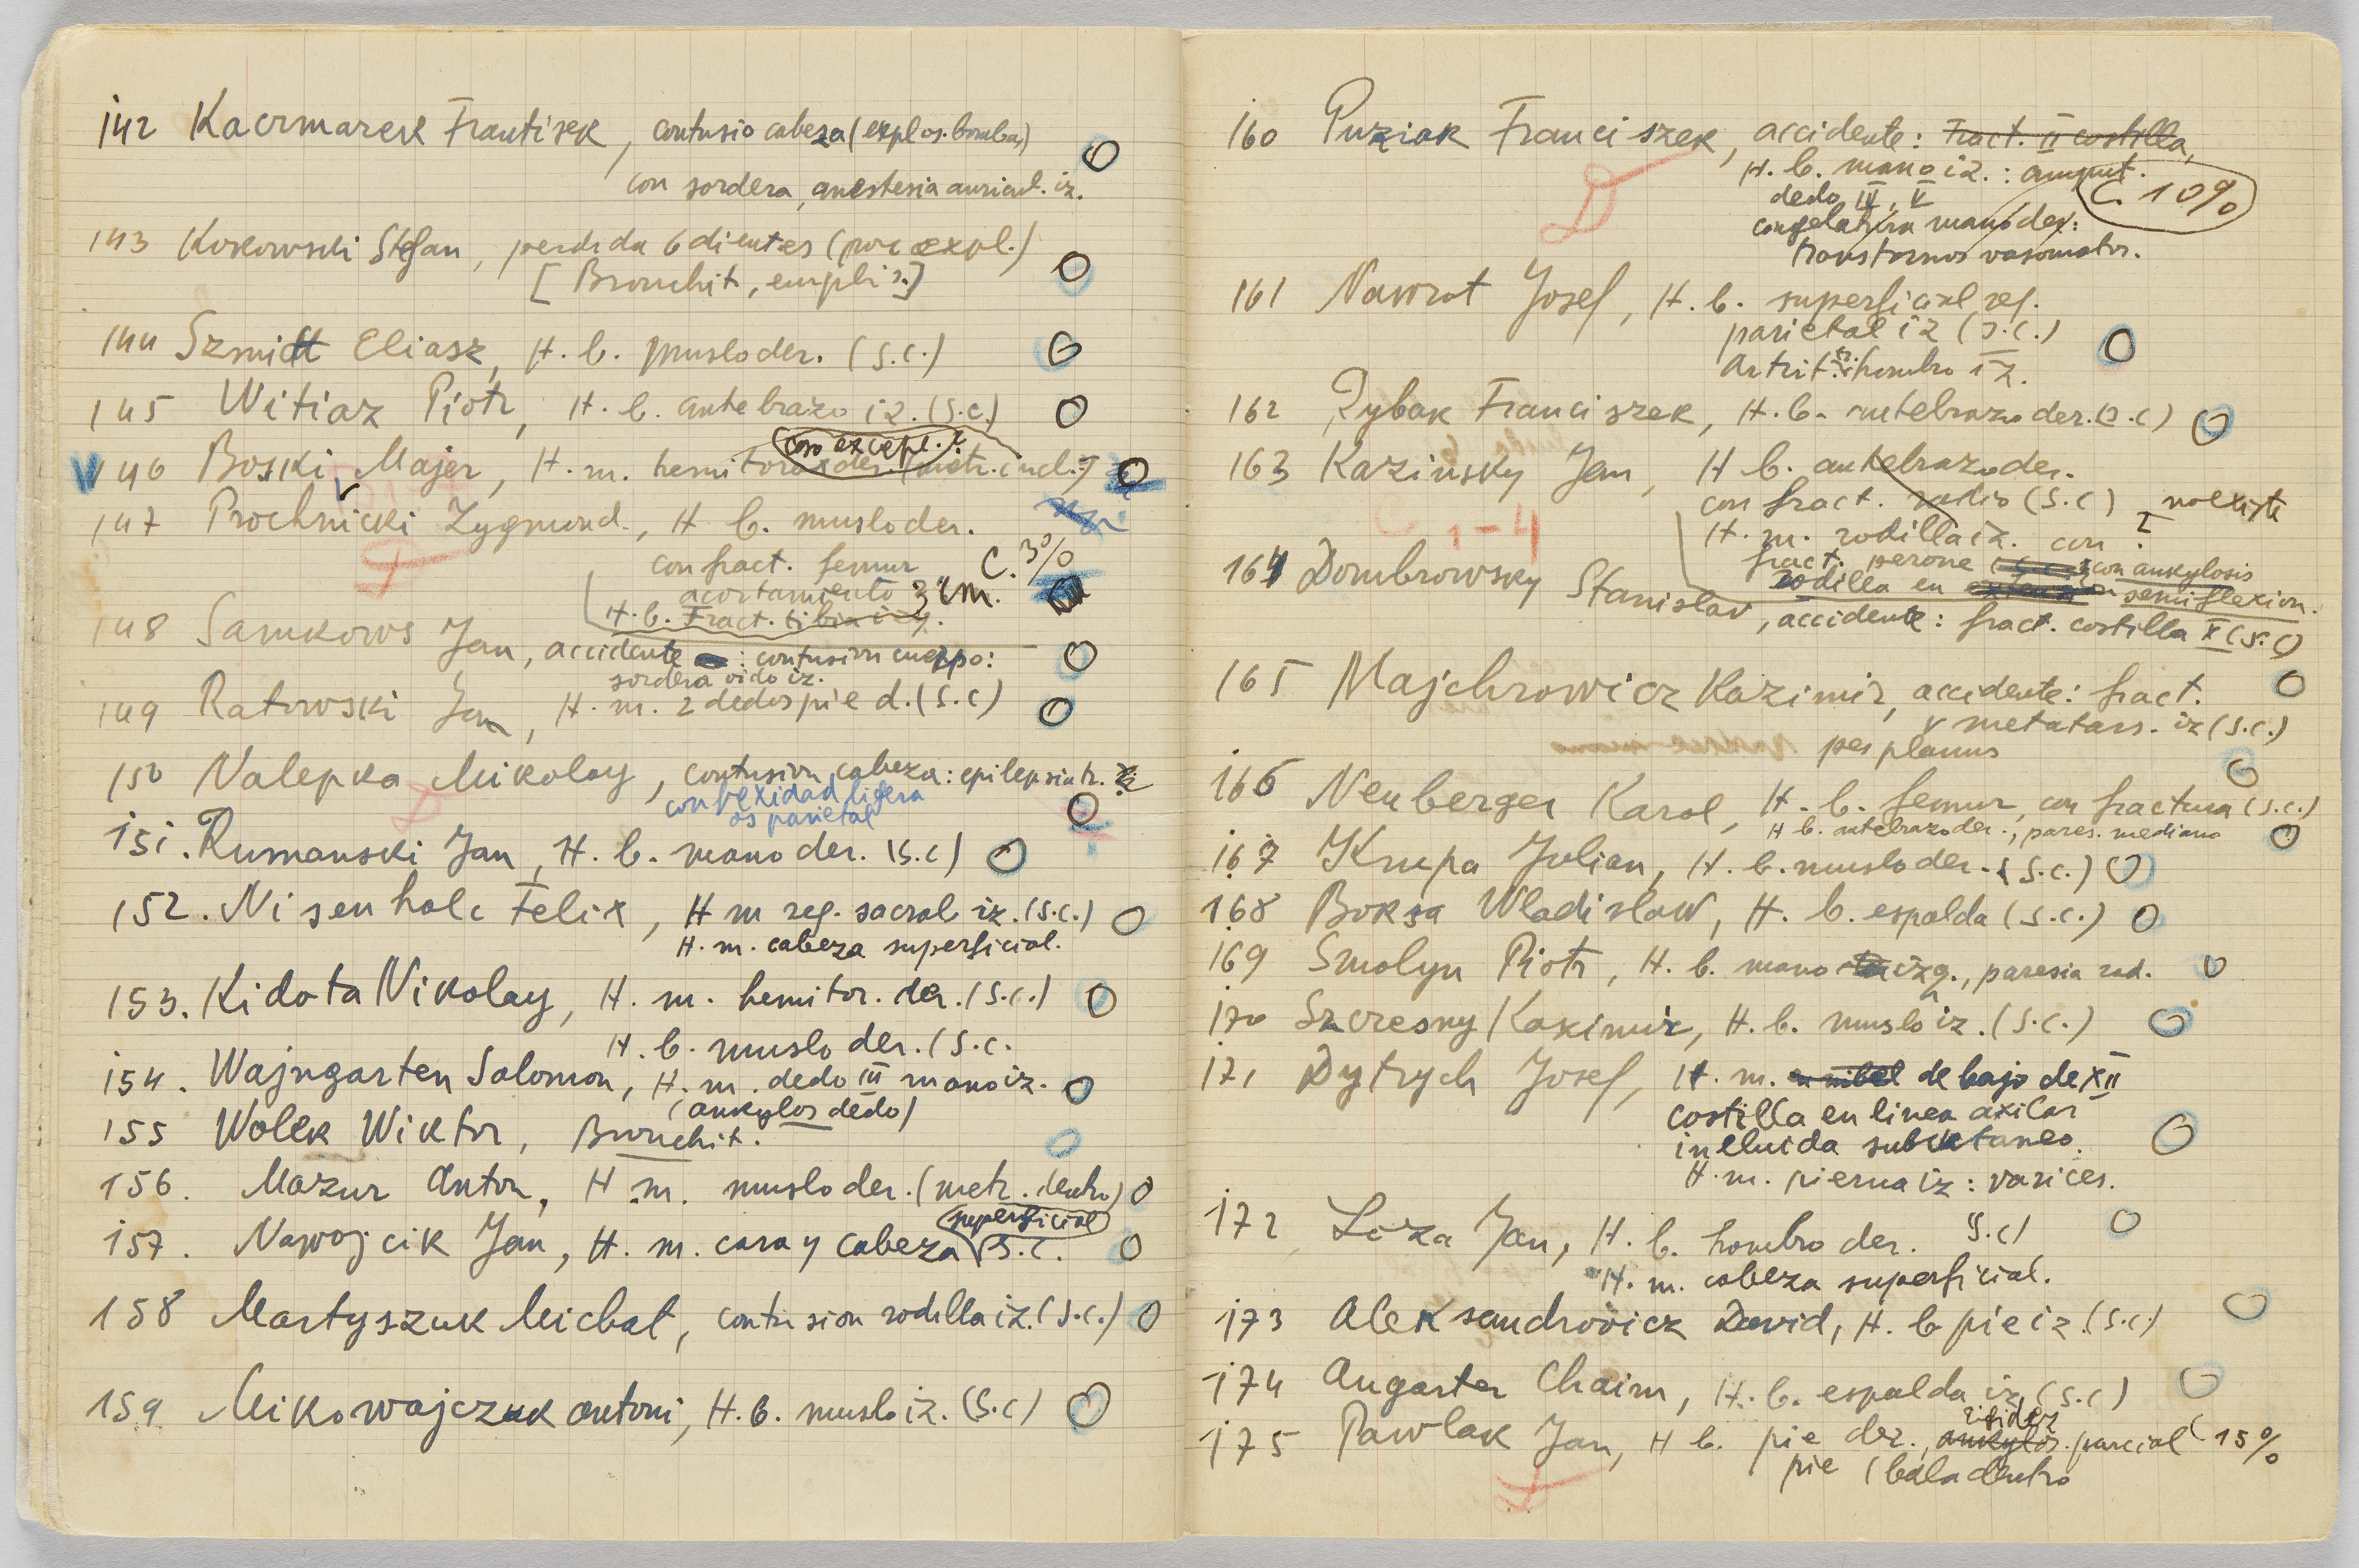 142 Kacrmarek Frantisek, contusio cabeza (explos. bomba,)
con sordera, anestesia auricul. iz.
143 Kokowski Stefan, perdida 6 dientes (por expl.)
[Bronchit, emphis.]
144 Szmidt Eliasz, H. b. muslo der. (S.C.)
145 Witiaz Piotr, H. b. antebrazo iz. (S.C.)
caso excepc.?
146 Boski Majer, H. m. hemitorax der. (metr. incl.)
147 Prochnicki Zygmund, H b. muslo der.
con fract. femur C. 3%
acortamiento 3 cm.
H. b. Fract. tibia izq.
148 Samkows Jan, accidente : contusion cuerpo:
sordera oido iz.
149 Ratowski Jan, H. m. 2 dedos pie d. (S.C)
150 Nalepka Mikolay, contusion cabeza: epilepsia tr.
convexidad ligera
os parietal
151. Rumanski Jan, H. b. mano der. (S.C)
152. Nisenholc Felix, H m reg. sacral iz. (S.C.)
H. m. cabeza superficial.
153. Kidota Nikolay, H. m. hemitor. der. (S.C.)
H. b. muslo der. (S.C.
154. Wajngarten Salomon, H. m. dedo III mano iz.
(ankylos dedo)
155 Wolek Wiktor, Bronchit.
156. Mazur Anton, H. m. muslo der. (metr. dentro)
superficial
157. Nawojcik Jan, H. m. cara y cabeza S.C.
158 Martyszuk Michal, contusion rodilla iz. (S.C.)
159 Mikowajczuk Antoni, H. b. muslo iz. (S.C)
160 Puziak Franciszek, accidente: Fract. II costilla,
H. b. mano iz.: amput.
dedo IV, V C. 10%
congelatura mano der:
transtornos vasomotor.
161 Nawrot Josef, H. b. superficial reg.
parietal iz (S.C.)
Artrit. tr. hombro iz.
162 Rybak Franciszek, H. b. antebrazo der. (S.C)
163 Kazinsky Jan, H b. antebrazo der.
con fract. radio (S.C) no existe
H. m. rodilla iz. con
C 1-4
fract. perone con ankylosis
rodilla en semiflexion.
164 Dombrowsky Stanislav, accidente: fract. costilla X (S.C)
165 Majchrowicz Kazimir, accidente: fract.
V metatars. iz (S.C.)
pes planus
166 Neuberger Karol, H. b. femur, con fractura (S.C.)
H b. antebrazo der., pares. mediano
167 Krupa Julian, H. b. muslo der. (S.C.)
168 Boksa Wladislaw, H. b. espalda (S.C.)
169 Smolyn Piotr, H. b. mano izq., paresia rad.
170 Szcresny Kazimir, H. b. muslo iz. (S.C.)
171 Dytrych Josef, H. m. debajo de XII
costilla en linea axilar
incluida subkutaneo.
H. m. pierna iz: varices.
172 Loza Jan, H. b. hombro der. S.C)
H. m. cabeza superficial.
173 Aleksandrovicz David, H. b pie iz (S.C.)
174 Augarter Chaim, H. b. espalda iz, (S.C)
rigidez
175 Pawlak Jan, H b. pie der., ankylos. parcial C 15%
pie (bala dentro